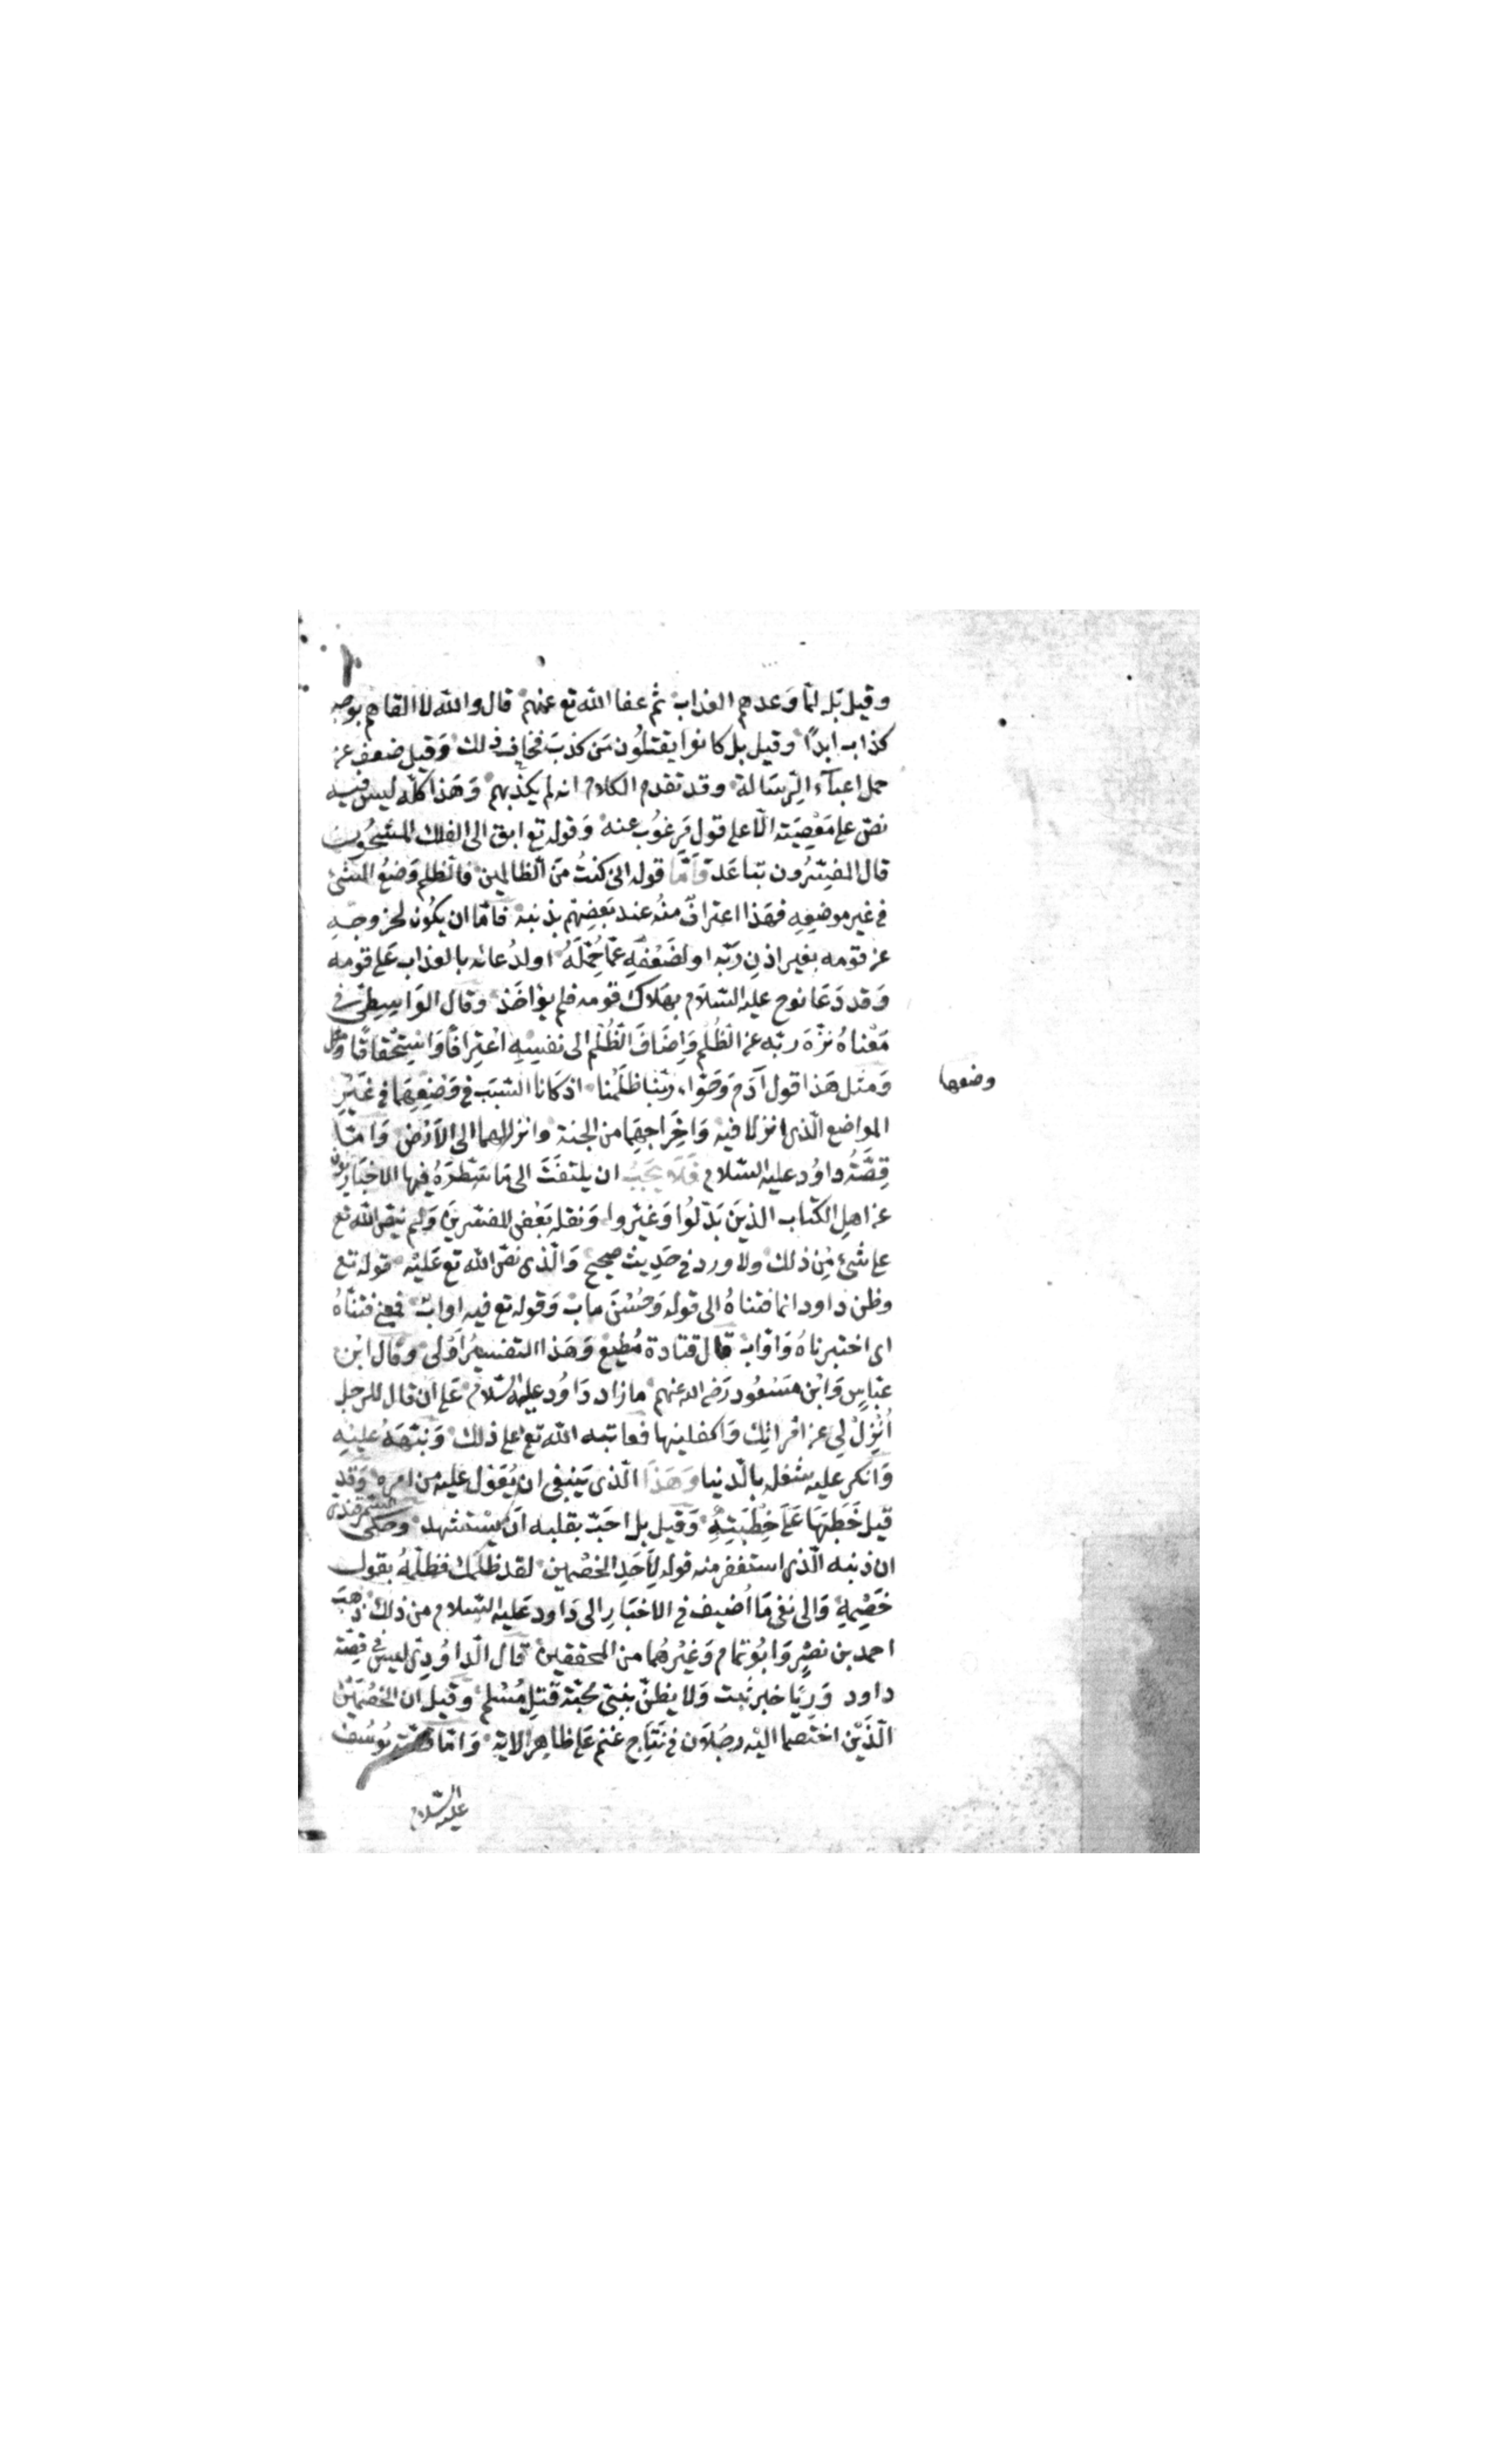 وقيل بل لمّا وَعدهم العذاب ثم عفا الله تع عنهم قال والله لا القاهم بوجه
كذاب ابدًا وقيل بل كانوا يقتلُون مَن كذبَ فخاف ذلك وَقيل ضعف عن
حمل اعبآء الرِّسَالة وقد تقدم الكلام انه لم يكذّبهم وَهَذا كلّه ليس فيه
نصّ على مَعْصِيَته الّا على قول مَرغوُب عنه وَقوله تع ابق الى الفلك المشحُون
قال المفسّرُون تباعَد وَأمّا قوله انى كنتُ مَن الظالمين فالظلم وَضعُ الشئ
فى غير موضِعِهِ فهَذا اعترافٌ منهُ عند بَعضِهم بذنبه فامّا ان يكُون لخروجهِ
عن قومه بغير اذنِ رَبّه اولضَعْفهِ عمّا حُمّلَهُ اولدُعائه بالعذاب عَلى قومه
وَقد دَعَا نوح عليه السّلاَم بهَلاك قومه فلم يؤاخَذ وقال الوَاسِطىّ فى
مَعْناهُ نزّهَ ربّه عن الظُلم وَاِضَافَ الظُلْم الى نفسِهِ اعْتِرافًا وَاسْتِحْقاقًا
وَمثل هَذا قول آدَم وَحَوّاء رَبّنا ظلَمْنا اذ كانا السّبَبَ فى وَضْعِهِمَا فى غَيْرِ
وضعهما
المواضع الّذى انزلا فيه وَاِخْرَاجِهِمَا من الجنة وانزالهما الى الاَرْض وَامّا
قِصَّةُ داوُد عليه السّلام فَلَا يَجَبُ ان يلتفَتَ الى مَا سَطّرَهُ فيها الاخبَاريّون
عن اهلِ الكتاب الذينَ بَدّلوُا وَغيّروا وَنقله بَعْض المفسّرينَ وَلم ينصّ الله تع
على شئ مِن ذلك ولا ورد فى حَدِيث صحيح وَالّذى نصّ الله تع عَليْه قوله تع
وظن داود انما فتناهُ الى قوله وَحُسْنَ ماب وَقوله تع فيه اواب فمعنى فتنّاهُ
اى اختبرناهُ وَاوّاب قال قتادة مُطيع وَهَذا التفسيرُ اَوْلى وقال ابْن
عَبّاسٍ وَابْن مسْعُود رَضى الله عنهم ما زاد دَاوُد عليه السّلام عَلى ان قال للرجل
اُنْزِلْ لِى عن امْرائِكَ وَاكفلينها فعاتبه الله تع على ذلك وَنبّهَهُ عليْهِ
وَانكر عليه شغله بالدنيا وَهَذَا الّذى يَنبغى ان يُعَوّل عليه من امره وَقد
قيلَ خَطَبَهَا عَلى خِطْبَتِهِ وَقيل بل احَبّ بقلبه اَنْ يُسْتشهد وحكى السّمرقندىّ
ان ذنبه الّذى استغفر منه قوله لِأحَدِ الخصْمين لقد ظَلَمك فظلّمهُ بقول
خَصْمِهِ وَالى نفى مَا اُضيف فى الاخبَارِ الى دَاود عَليه السّلام من ذلك ذهبَ
احمد بن نصْرٍ وَابُو تمام وَغيْرهُما من المحققين قال الدّاوُدِىّ ليسَ فى قصّة
داود وَرِيَا خبر ثبت وَلا يظنّ بنبى محبّة قتْلِ مُسْلم وَقيل ان الخصْمَيْن
الّذَيْن اختصما اليْه رَجُلاَن فى نَتَاجِ غنمٍ عَلى ظاهِرِ الاية وَامّا قصّة يوُسُف
عليه السّلام